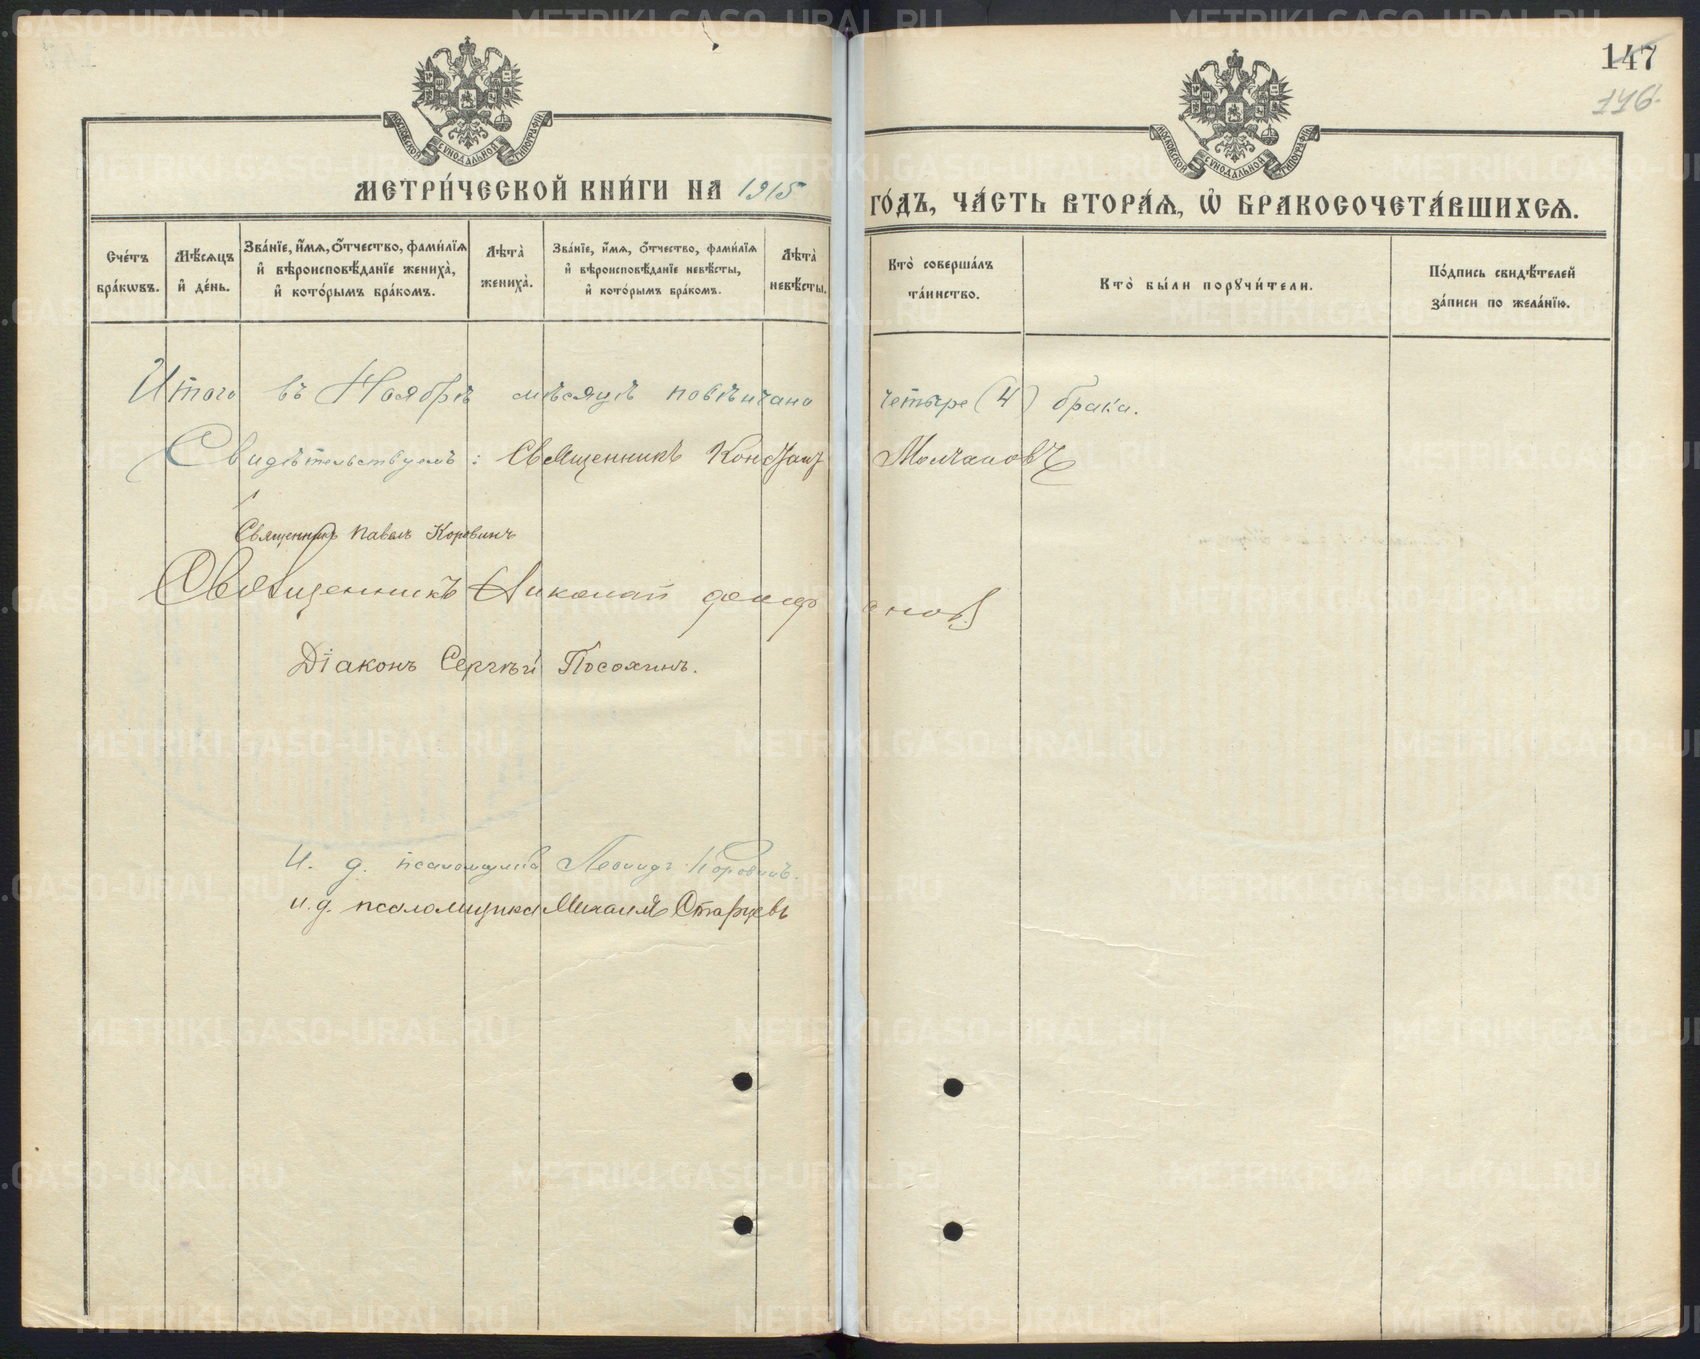 147
146.
МОСКОВСКОЙ СУНОДАЛЬНОЙ ТИПОГРАФІИ
МОСКОВСКОЙ СУНОДАЛЬНОЙ ТИПОГРАФІИ
МЕТРИ́ЧЕСКОЙ КНИ́ГИ НА 1915 ГО́ДЪ, ЧА́СТЬ ВТОРА́Ѧ, Ѽ БРАКОСОЧЕТА́ВШИХСѦ.
Сче́тъ бра́кѡвъ.
Мѣ́сѧцъ и҆ де́нь.
Зва́нїе, и҆́мѧ, ѻ҆́тчество, фами́лїѧ и҆ вѣроисповѣ́данїе жениха̀, и҆ кото́рымъ бра́комъ.
Лѣ́та̀ жениха̀.
Зва́нїе, и҆́мѧ, ѻ҆́тчество, фами́лїѧ и҆ вѣроисповѣ́данїе невѣ́сты, и҆ кото́рымъ бра́комъ.
Лѣ́та̀ невѣ́сты.
Кто̀ соверша́лъ та́инство.
Кто̀ бы́ли порꙋчи́тели.
По́дпись свидѣ́телей за́писи по жела́нїю.
Итого въ Ноябрѣ мѣсяцѣ повѣнчано четыре (4) брака.
Свидѣтельствуемъ: Священникъ Конст Молчановъ
Священникъ Павелъ Коровинъ
Священникъ Николай
Діаконъ Сергѣй Посохинъ.
И. д. псаломщика Леонидъ Коровинъ.
и. д. псаломщика Михаилъ Старцевъ
METRIKI.GASO-URAL.RU